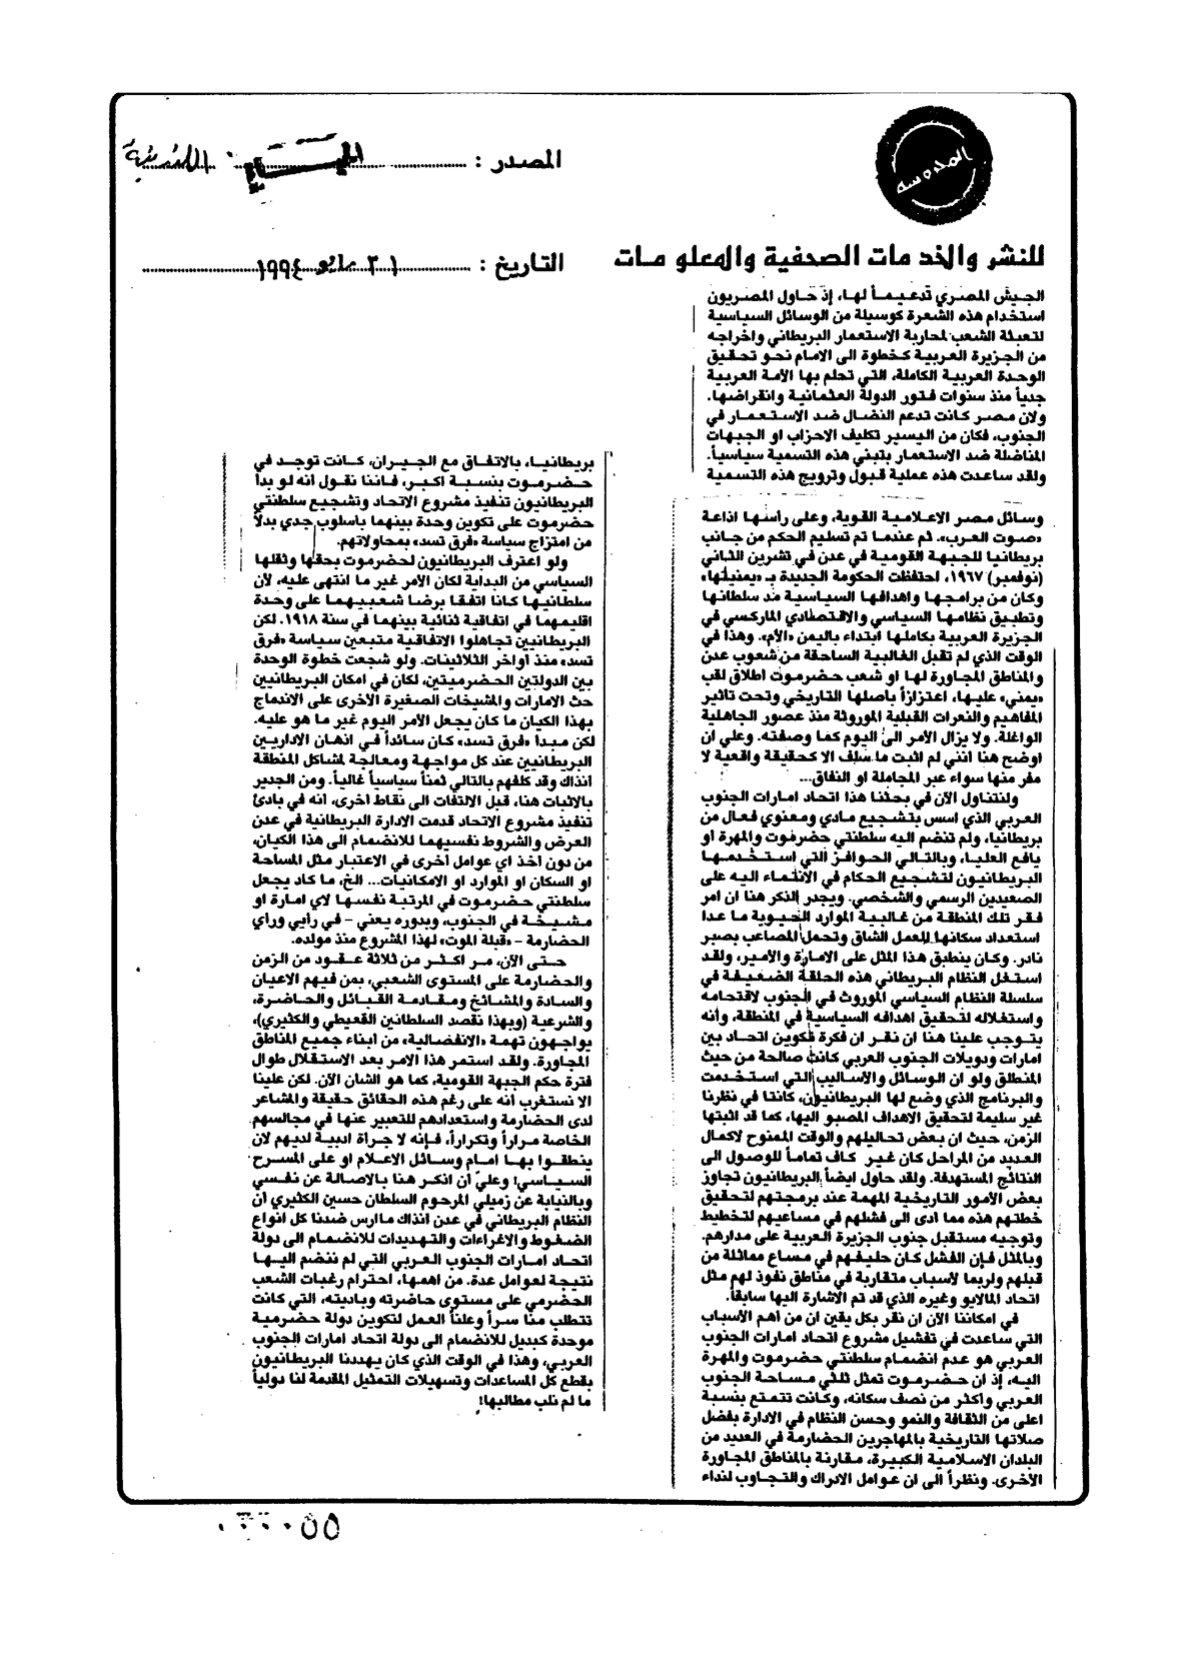 المحروسة
المصدر : الحياة اللندنية
للنشر والخدمات الصحفية والمعلومات
التاريخ : ٣١ مايو ١٩٩٤
الجيش المصري تدعيماً لها، إذ حاول المصريون
استخدام هذه الشعرة كوسيلة من الوسائل السياسية
لتعبئة الشعب لمحاربة الاستعمار البريطاني واخراجه
من الجزيرة العربية كخطوة الى الامام نحو تحقيق
الوحدة العربية الكاملة، التي تحلم بها الأمة العربية
جدياً منذ سنوات فتور الدولة العثمانية وانقراضها.
ولان مصر كانت تدعم النضال ضد الاستعمار في
الجنوب، فكان من اليسير تكليف الاحزاب او الجبهات
المناضلة ضد الاستعمار بتبني هذه التسمية سياسياً.
ولقد ساعدت هذه عملية قبول وترويج هذه التسمية
وسائل مصر الاعلامية القوية، وعلى رأسها اذاعة
«صوت العرب». ثم عندما تم تسليم الحكم من جانب
بريطانيا للجبهة القومية في عدن في تشرين الثاني
(نوفمبر) ١٩٦٧، احتفظت الحكومة الجديدة بـ «يمنيتها»
وكان من برامجها واهدافها السياسية مد سلطانها
وتطبيق نظامها السياسي والاقتصادي الماركسي في
الجزيرة العربية بكاملها ابتداء باليمن «الأم». وهذا في
الوقت الذي لم تقبل الغالبية الساحقة من شعوب عدن
والمناطق المجاورة لها او شعب حضرموت اطلاق لقب
«يمني» عليها، اعتزازاً باصلها التاريخي وتحت تاثير
المفاهيم والنعرات القبلية الموروثة منذ عصور الجاهلية
الواغلة. ولا يزال الأمر الى اليوم كما وصفته. وعلي ان
اوضح هنا انني لم اثبت ما سلف الا كحقيقة واقعية لا
مفر منها سواء عبر المجاملة او النفاق...
ولنتناول الآن في بحثنا هذا اتحاد امارات الجنوب
العربي الذي اسس بتشجيع مادي ومعنوي فعال من
بريطانيا، ولم تنضم اليه سلطنتي حضرموت والمهرة او
يافع العليا، وبالتالي الحوافز التي استخدمها
البريطانيون لتشجيع الحكام في الانتماء اليه على
الصعيدين الرسمي والشخصي. ويجدر الذكر هنا ان امر
فقر تلك المنطقة من غالبية الموارد الحيوية ما عدا
استعداد سكانها للعمل الشاق وتحمل المصاعب بصبر
نادر. وكان ينطبق هذا المثل على الامارة والأمير، ولقد
استغل النظام البريطاني هذه الحلقة الضعيفة في
سلسلة النظام السياسي الموروث في الجنوب لاقتحامه
واستغلاله لتحقيق اهدافه السياسية في المنطقة، وأنه
يتوجب علينا هنا ان نقر ان فكرة تكوين اتحاد بين
امارات ودويلات الجنوب العربي كانت صالحة من حيث
المنطلق ولو ان الوسائل والأساليب التي استخدمت
والبرنامج الذي وضع لها البريطانيون، كانتا في نظرنا
غير سليمة لتحقيق الاهداف المصبو اليها، كما قد اثبتها
الزمن، حيث ان بعض تحاليلهم والوقت الممنوح لاكمال
العديد من المراحل كان غير كاف تماماً للوصول الى
النتائج المستهدفة. ولقد حاول ايضاً البريطانيون تجاوز
بعض الأمور التاريخية المهمة عند برمجتهم لتحقيق
خطتهم هذه مما ادى الى فشلهم في مساعيهم لتخطيط
وتوجيه مستقبل جنوب الجزيرة العربية على مدارهم.
وبالمثل فإن الفشل كان حليفهم في مساع مماثلة من
قبلهم ولربما لأسباب متقاربة في مناطق نفوذ لهم مثل
اتحاد الملايو وغيره الذي قد تم الاشارة اليها سابقاً.
في امكاننا الآن ان نقر بكل يقين ان من اهم الأسباب
التي ساعدت في تفشيل مشروع اتحاد امارات الجنوب
العربي هو عدم انضمام سلطنتي حضرموت والمهرة
اليه، إذ ان حضرموت تمثل ثلثي مساحة الجنوب
العربي وأكثر من نصف سكانه، وكانت تتمتع بنسبة
اعلى من الثقافة والنمو وحسن النظام في الادارة بفضل
صلاتها التاريخية بالمهاجرين الحضارمة في العديد من
البلدان الاسلامية الكبيرة، مقارنة بالمناطق المجاورة
الأخرى. ونظراً الى ان عوامل الادراك والتجاوب لنداء
بريطانيا، بالاتفاق مع الجيران، كانت توجد في
حضرموت بنسبة اكبر، فاننا نقول انه لو بدأ
البريطانيون تنفيذ مشروع الاتحاد وتشجيع سلطنتي
حضرموت على تكوين وحدة بينهما باسلوب جدي بدلاً
من امتزاج سياسة «فرق تسد» بمحاولاتهم.
ولو اعترف البريطانيون لحضرموت بحقها وثقلها
السياسي من البداية لكان الأمر غير ما انتهى عليه، لأن
سلطانيها كانا اتفقا برضا شعبيهما على وحدة
اقليمهما في اتفاقية ثنائية بينهما في سنة ١٩١٨. لكن
البريطانيين تجاهلوا الاتفاقية متبعين سياسة «فرق
تسد» منذ أواخر الثلاثينات. ولو شجعت خطوة الوحدة
بين الدولتين الحضرميتين، لكان في امكان البريطانيين
حث الامارات والمشيخات الصغيرة الأخرى على الاندماج
بهذا الكيان ما كان يجعل الأمر اليوم غير ما هو عليه.
لكن مبدا «فرق تسد» كان سائداً في اذهان الاداريين
البريطانيين عند كل مواجهة ومعالجة لمشاكل المنطقة
آنذاك وقد كلفهم بالتالي ثمناً سياسياً غالياً. ومن الجدير
بالاثبات هنا، قبل الالتفات الى نقاط اخرى، انه في بادئ
تنفيذ مشروع الاتحاد قدمت الادارة البريطانية في عدن
العرض والشروط نفسيهما للانضمام الى هذا الكيان،
من دون اخذ اي عوامل أخرى في الاعتبار مثل المساحة
او السكان او الموارد او الامكانيات... الخ، ما كاد يجعل
سلطنتي حضرموت في المرتبة نفسها لاي امارة او
مشيخة في الجنوب، وبدوره يعني - في رايي وراي
الحضارمة - «قبلة الموت» لهذا المشروع منذ مولده.
حتى الآن، مر اكثر من ثلاثة عقود من الزمن
والحضارمة على المستوى الشعبي، بمن فيهم الاعيان
والسادة والمشائخ ومقادمة القبائل والحاضرة،
والشرعية (وبهذا نقصد السلطانين القعيطي والكثيري)،
يواجهون تهمة «الانفصالية» من ابناء جميع المناطق
المجاورة. ولقد استمر هذا الامر بعد الاستقلال طوال
فترة حكم الجبهة القومية، كما هو الشان الآن. لكن علينا
الا نستغرب أنه على رغم هذه الحقائق حقيقة والمشاعر
لدى الحضارمة واستعدادهم للتعبير عنها في مجالسهم
الخاصة مراراً وتكراراً، فإنه لا جراة ادبية لديهم لان
ينطقوا بها امام وسائل الاعلام او على المسرح
السياسي! وعليّ ان انكر هنا بالاصالة عن نفسي
وبالنيابة عن زميلي المرحوم السلطان حسين الكثيري ان
النظام البريطاني في عدن انذاك مارس ضدنا كل انواع
الضغوط والاغراءات والتهديدات للانضمام الى دولة
اتحاد امارات الجنوب العربي التي لم ننضم اليها
نتيجة لعوامل عدة. من اهمها، احترام رغبات الشعب
الحضرمي على مستوى حاضرته وباديته، التي كانت
تتطلب منا سراً وعلناً العمل لتكوين دولة حضرمية
موحدة كبديل للانضمام الى دولة اتحاد امارات الجنوب
العربي، وهذا في الوقت الذي كان يهددنا البريطانيون
بقطع كل المساعدات وتسهيلات التمثيل المقدمة لنا دولياً
ما لم نلب مطالبها!